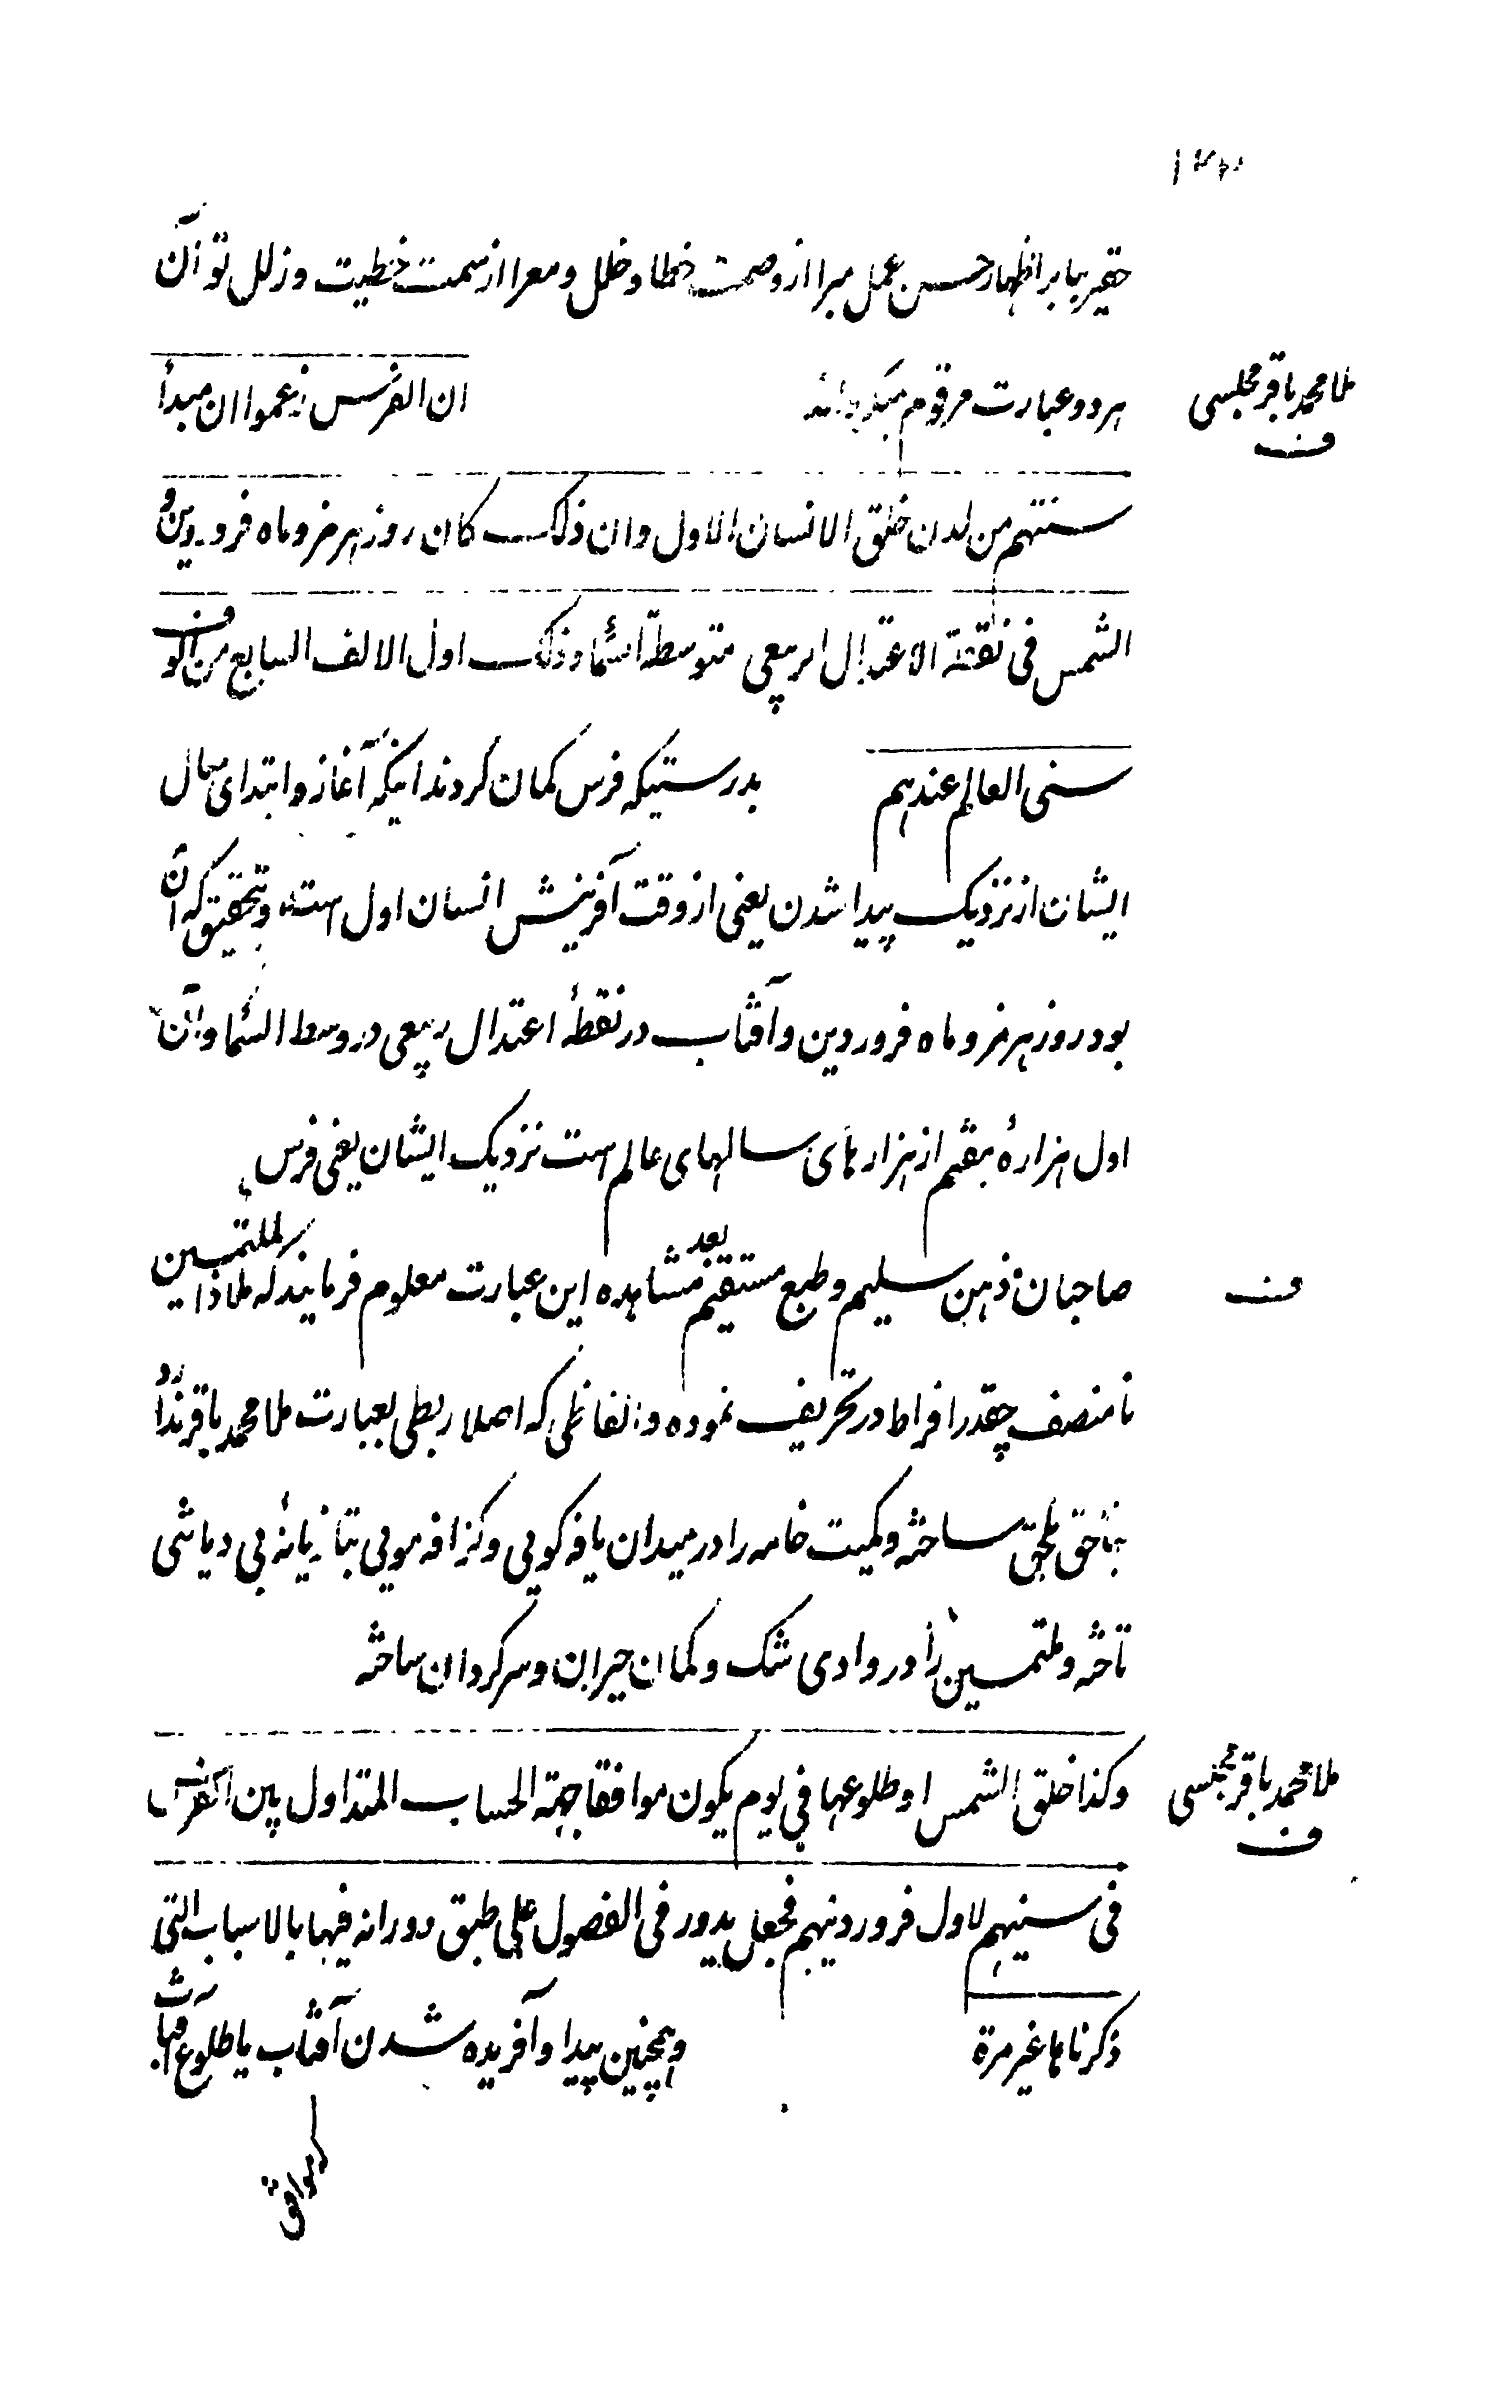 حقیر بنابر اظهار حسن عمل مبرا از وصمت خطا و خلل و معرا از سمت خطیت و زلل تو آن
ملا محمد باقر مجلسی
ف
هر دو عبارت مرقوم میگرداند ان الفرس زعموا ان مبدأ
سنتهم من لدن خلق الانسان الاول وان ذلک کان روز هرمز و ماه فروردین و
الشمس فی نقطة الاعتدال الربیعی متوسطة السماء وذلک اول الالف السابع من الوف
سنی العالم عندهم بدرستیکه فرس کمان کردند اینکه آغاز و ابتدای سال
ایشان از نزدیک پیدا شدن یعنی از وقت آفرینش انسان اول است و تحقیق که آن
بود روز هرمز و ماه فروردین و آفتاب در نقطۀ اعتدال ربیعی در وسط السماء و آن
اول هزارۀ هفتم از هزارهای سالهای عالم است نزدیک ایشان یعنی فرس
ف
صاحبان ذهن سلیم و طبع مستقیم بعد مشاهده این عبارت معلوم فرمایند که ملاذ الملتمسین
نامنصف چقدر افراط در تحریف نموده و الفاظی که اصلا ربطی بعبارت ملا محمد باقر ندارد
بناحق ملحق ساخته و کمیت خامه را در میدان یافه کویی و کزافه مویی بتازیانه بی دیاشی
تاخته و ملتمسین را در وادی شک و کمان حیران و سرکردان ساخته
ملا محمد باقر مجلسی
ف
وکذا خلق الشمس او طلوعها فی یوم یکون موافقا جهة الحساب المتداول بین الفرس
فی سنیهم لاول فروردینهم فجعل یدور فی الفصول علی طبق دورانه فیها بالاسباب التی
ذکرناها غیر مرة وهمچنین پیدا و آفریده شدن آفتاب یا طلوع آفتاب